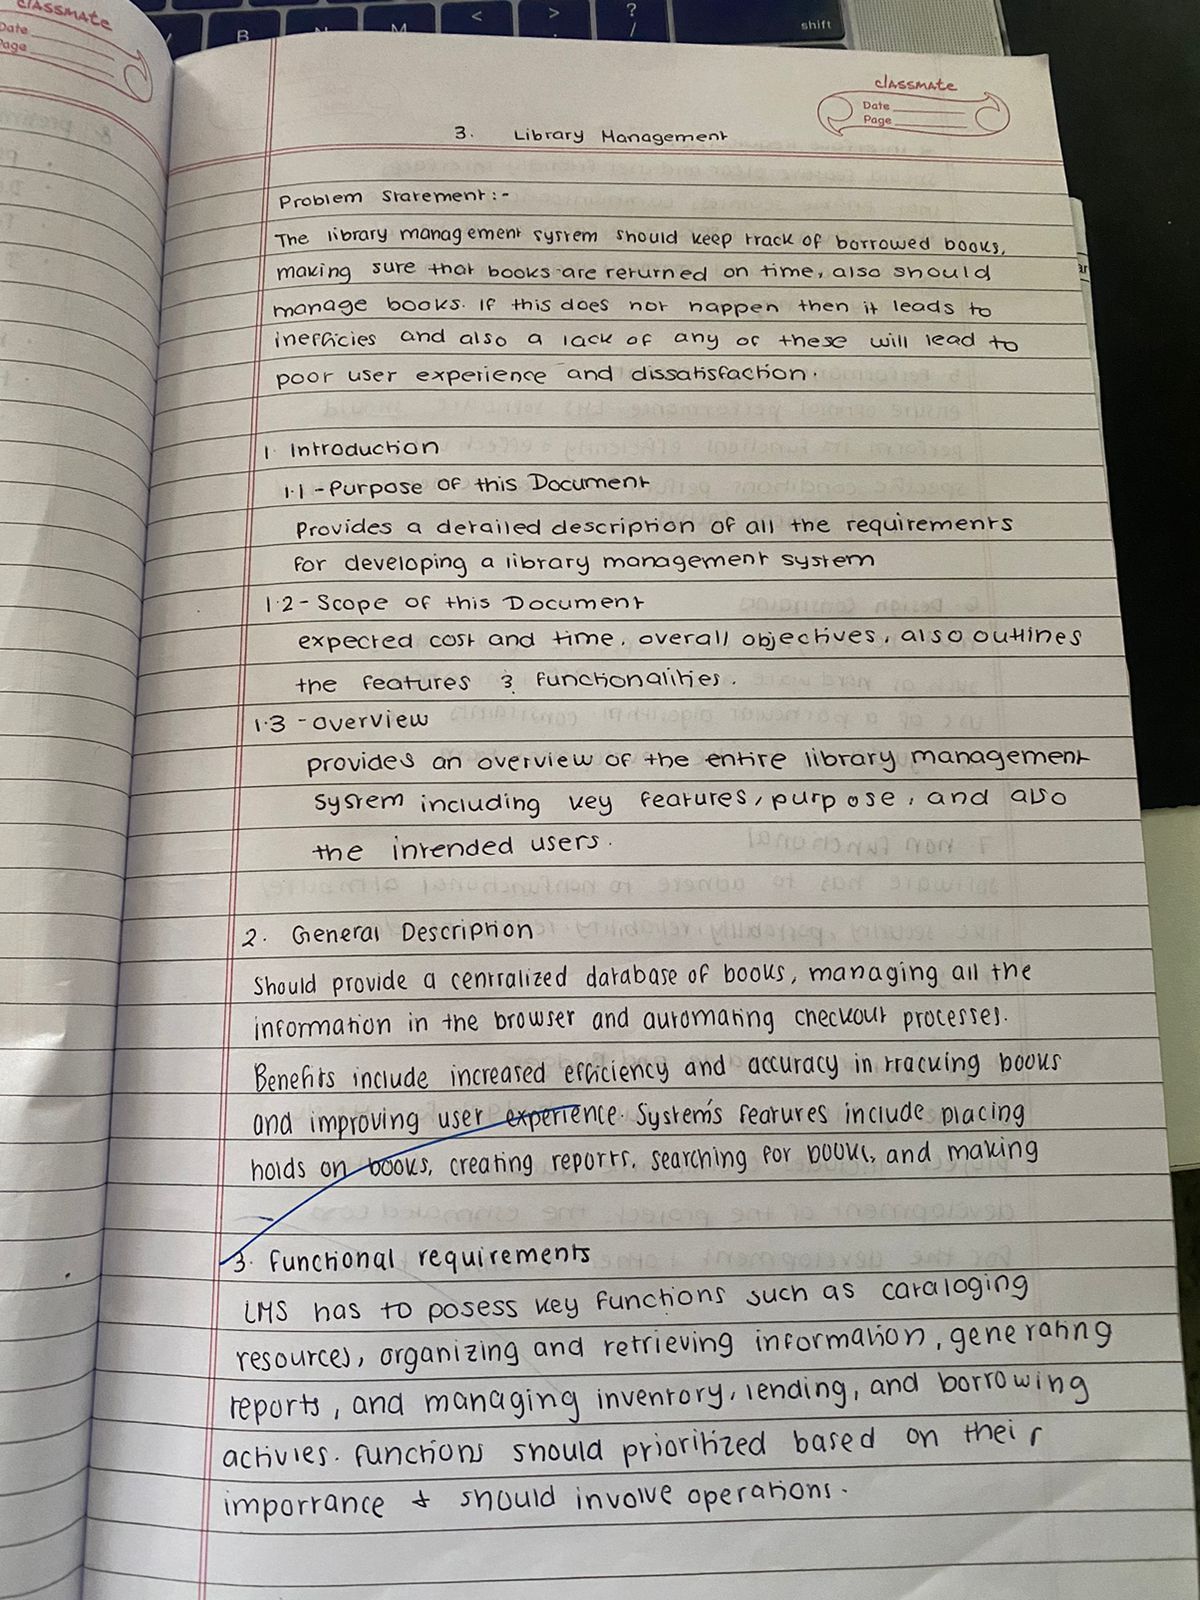 classmate
Date
Page
B
N
M
<
>
?
/
shift
classmate
Date
Page
3. Library Management
Problem Statement :-
The library management system should keep track of borrowed books,
making sure that books are returned on time, also should
manage books. If this does not happen then it leads to
inefficies and also a lack of any of these will lead to
poor user experience and dissatisfaction.
1. Introduction
1.1 - Purpose of this Document
Provides a detailed description of all the requirements
for developing a library management system
1.2 - Scope of this Document
expected cost and time, overall objectives, also outlines
the features & functionalities.
1.3 - overview
provides an overview of the entire library management
system including key features, purpose, and also
the intended users.
2. General Description
Should provide a centralized database of books, managing all the
information in the browser and automating checkout processes.
Benefits include increased efficiency and accuracy in tracking books
and improving user experience. System's features include placing
holds on books, creating reports, searching for books, and making
3. Functional requirements
LMS has to posess key functions such as cataloging
resources, organizing and retrieving information, generating
reports, and managing inventory, lending, and borrowing
activies. functions should prioritized based on their
importance & should involve operations.